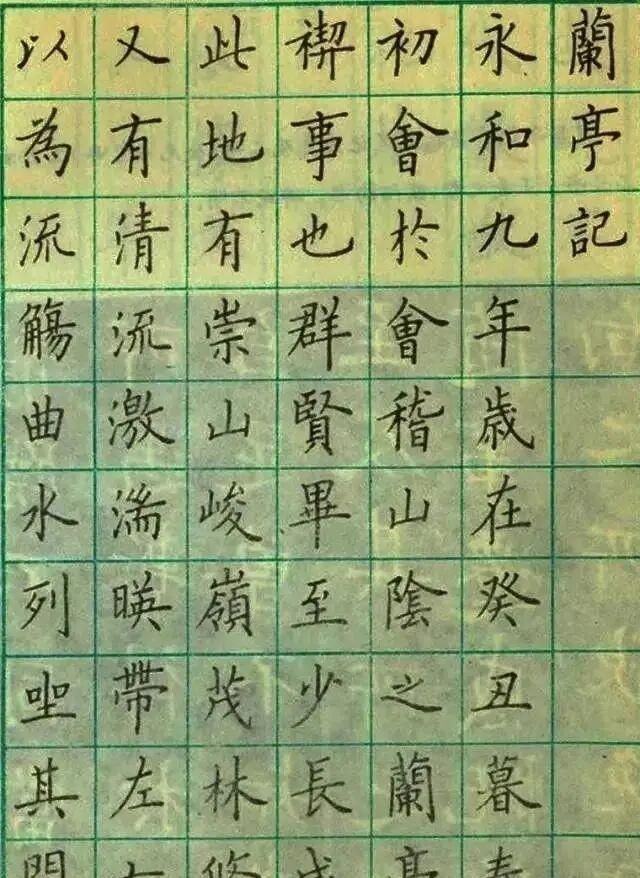 蘭亭記
永和九年歳在癸丑暮春
初會於會稽山陰之蘭亭
禊事也群賢畢至少長咸
此地有崇山峻嶺茂林修
又有清流激湍暎帶左右
以為流觴曲水列坐其